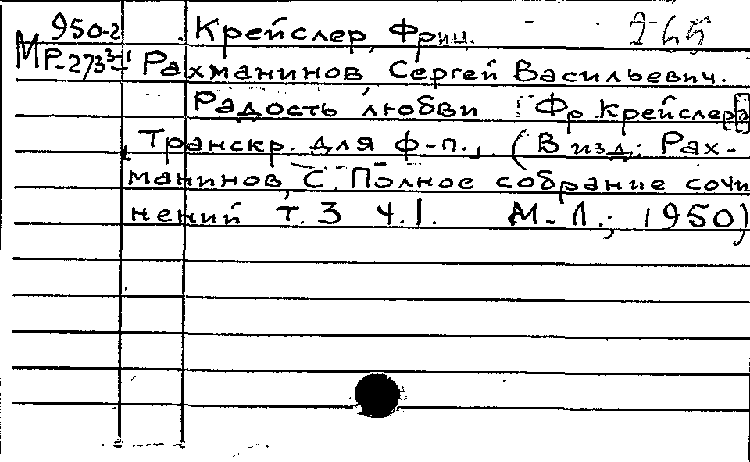 950-2 Крейслер, Фриц. 265
МР-273 Рахманинов, Сергей Васильевич.
Радость любви Фр. Крейслера
Транскр. для ф-п. (В изд: Рах-
манинов, С. Полное собрание сочи
нений т. 3 ч. 1. М.-Л.; 1950)